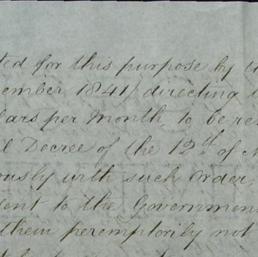 ted for this purpose by
ember 1841, directing
lars per month, to be re
l Decree of the 12th of
ously with such Order,
ent to the Government
them peremptorily not